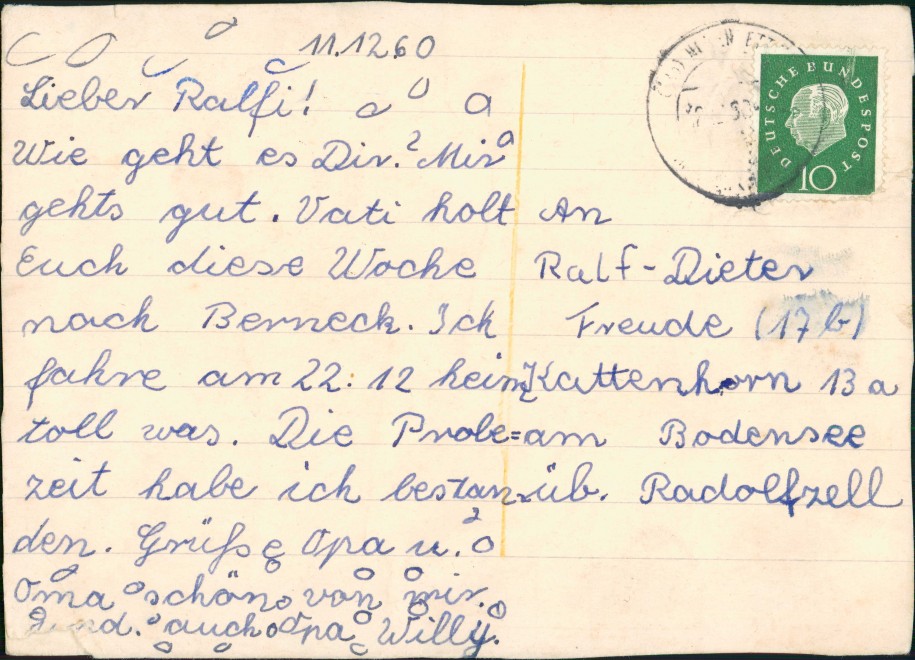 11.12.60
Lieber Ralfi!
Wie geht es Dir? Mir
gehts gut. Vati holt
Euch diese Woche
nach Berneck. Ich
fahre am 22.12 heim,
toll was. Die Probe=
zeit habe ich bestan-
den. Grüße Opa u.
Oma schön von mir.
und. auch Opa Willy.
DEUTSCHE BUNDESPOST
10
An
Ralf-Dieter
Freude (17b)
Kattenhorn 13a
am Bodensee
üb. Radolfzell